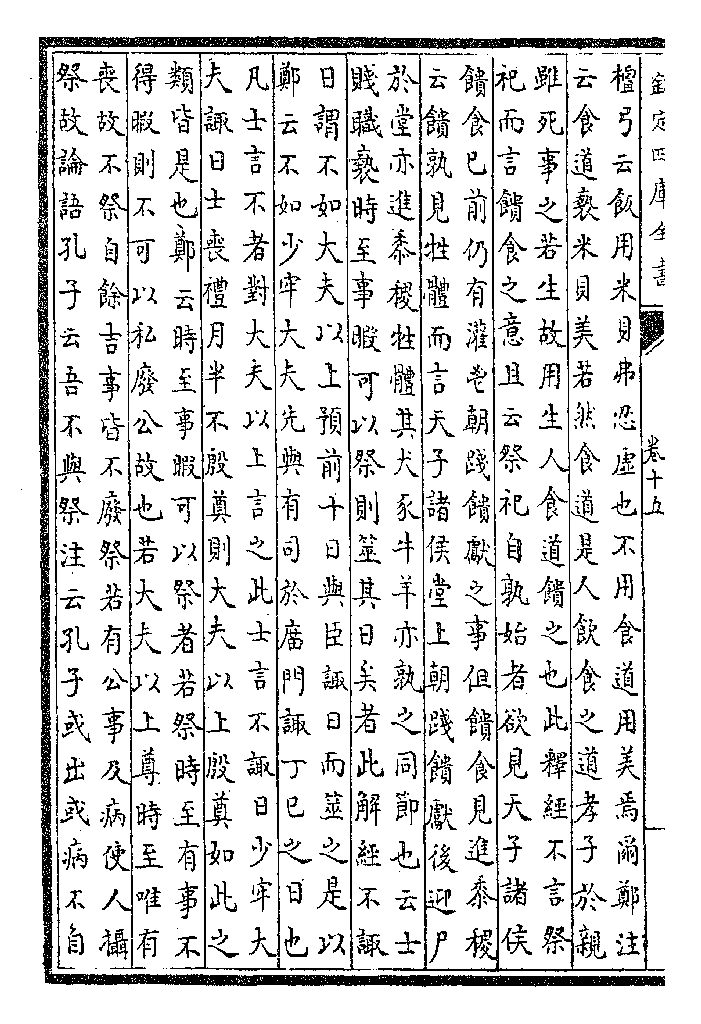 欽定四庫全書
卷十五
檀弓云飯用米貝弗忍虛也不用食道用美焉爾鄭注
云食道䙝米貝美若然食道是人飲食之道孝子於親
雖死事之若生故用生人食道饋之也此釋經不言祭
祀而言饋食之意且云祭祀自孰始者欲見天子諸侯
饋食已前仍有灌鬯朝踐饋獻之事但饋食見進黍稷
云饋孰見牲體而言天子諸侯堂上朝踐饋獻後迎尸
於堂亦進黍稷牲體其犬豕牛羊亦孰之同節也云士
賤職䙝時至事暇可以祭則筮其日矣者此解經不諏
日謂不如大夫以上預前十日與臣諏日而筮之是以
鄭云不如少牢大夫先與有司於廟門諏丁巳之日也
凡士言不者對大夫以上言之此士言不諏日少牢大
夫諏日士喪禮月半不殷奠則大夫以上殷奠如此之
類皆是也鄭云時至事暇可以祭者若祭時至有事不
得暇則不可以私廢公故也若大夫以上尊時至唯有
喪故不祭自餘吉事皆不廢祭若有公事及病使人攝
祭故論語孔子云吾不與祭注云孔子或出或病不自